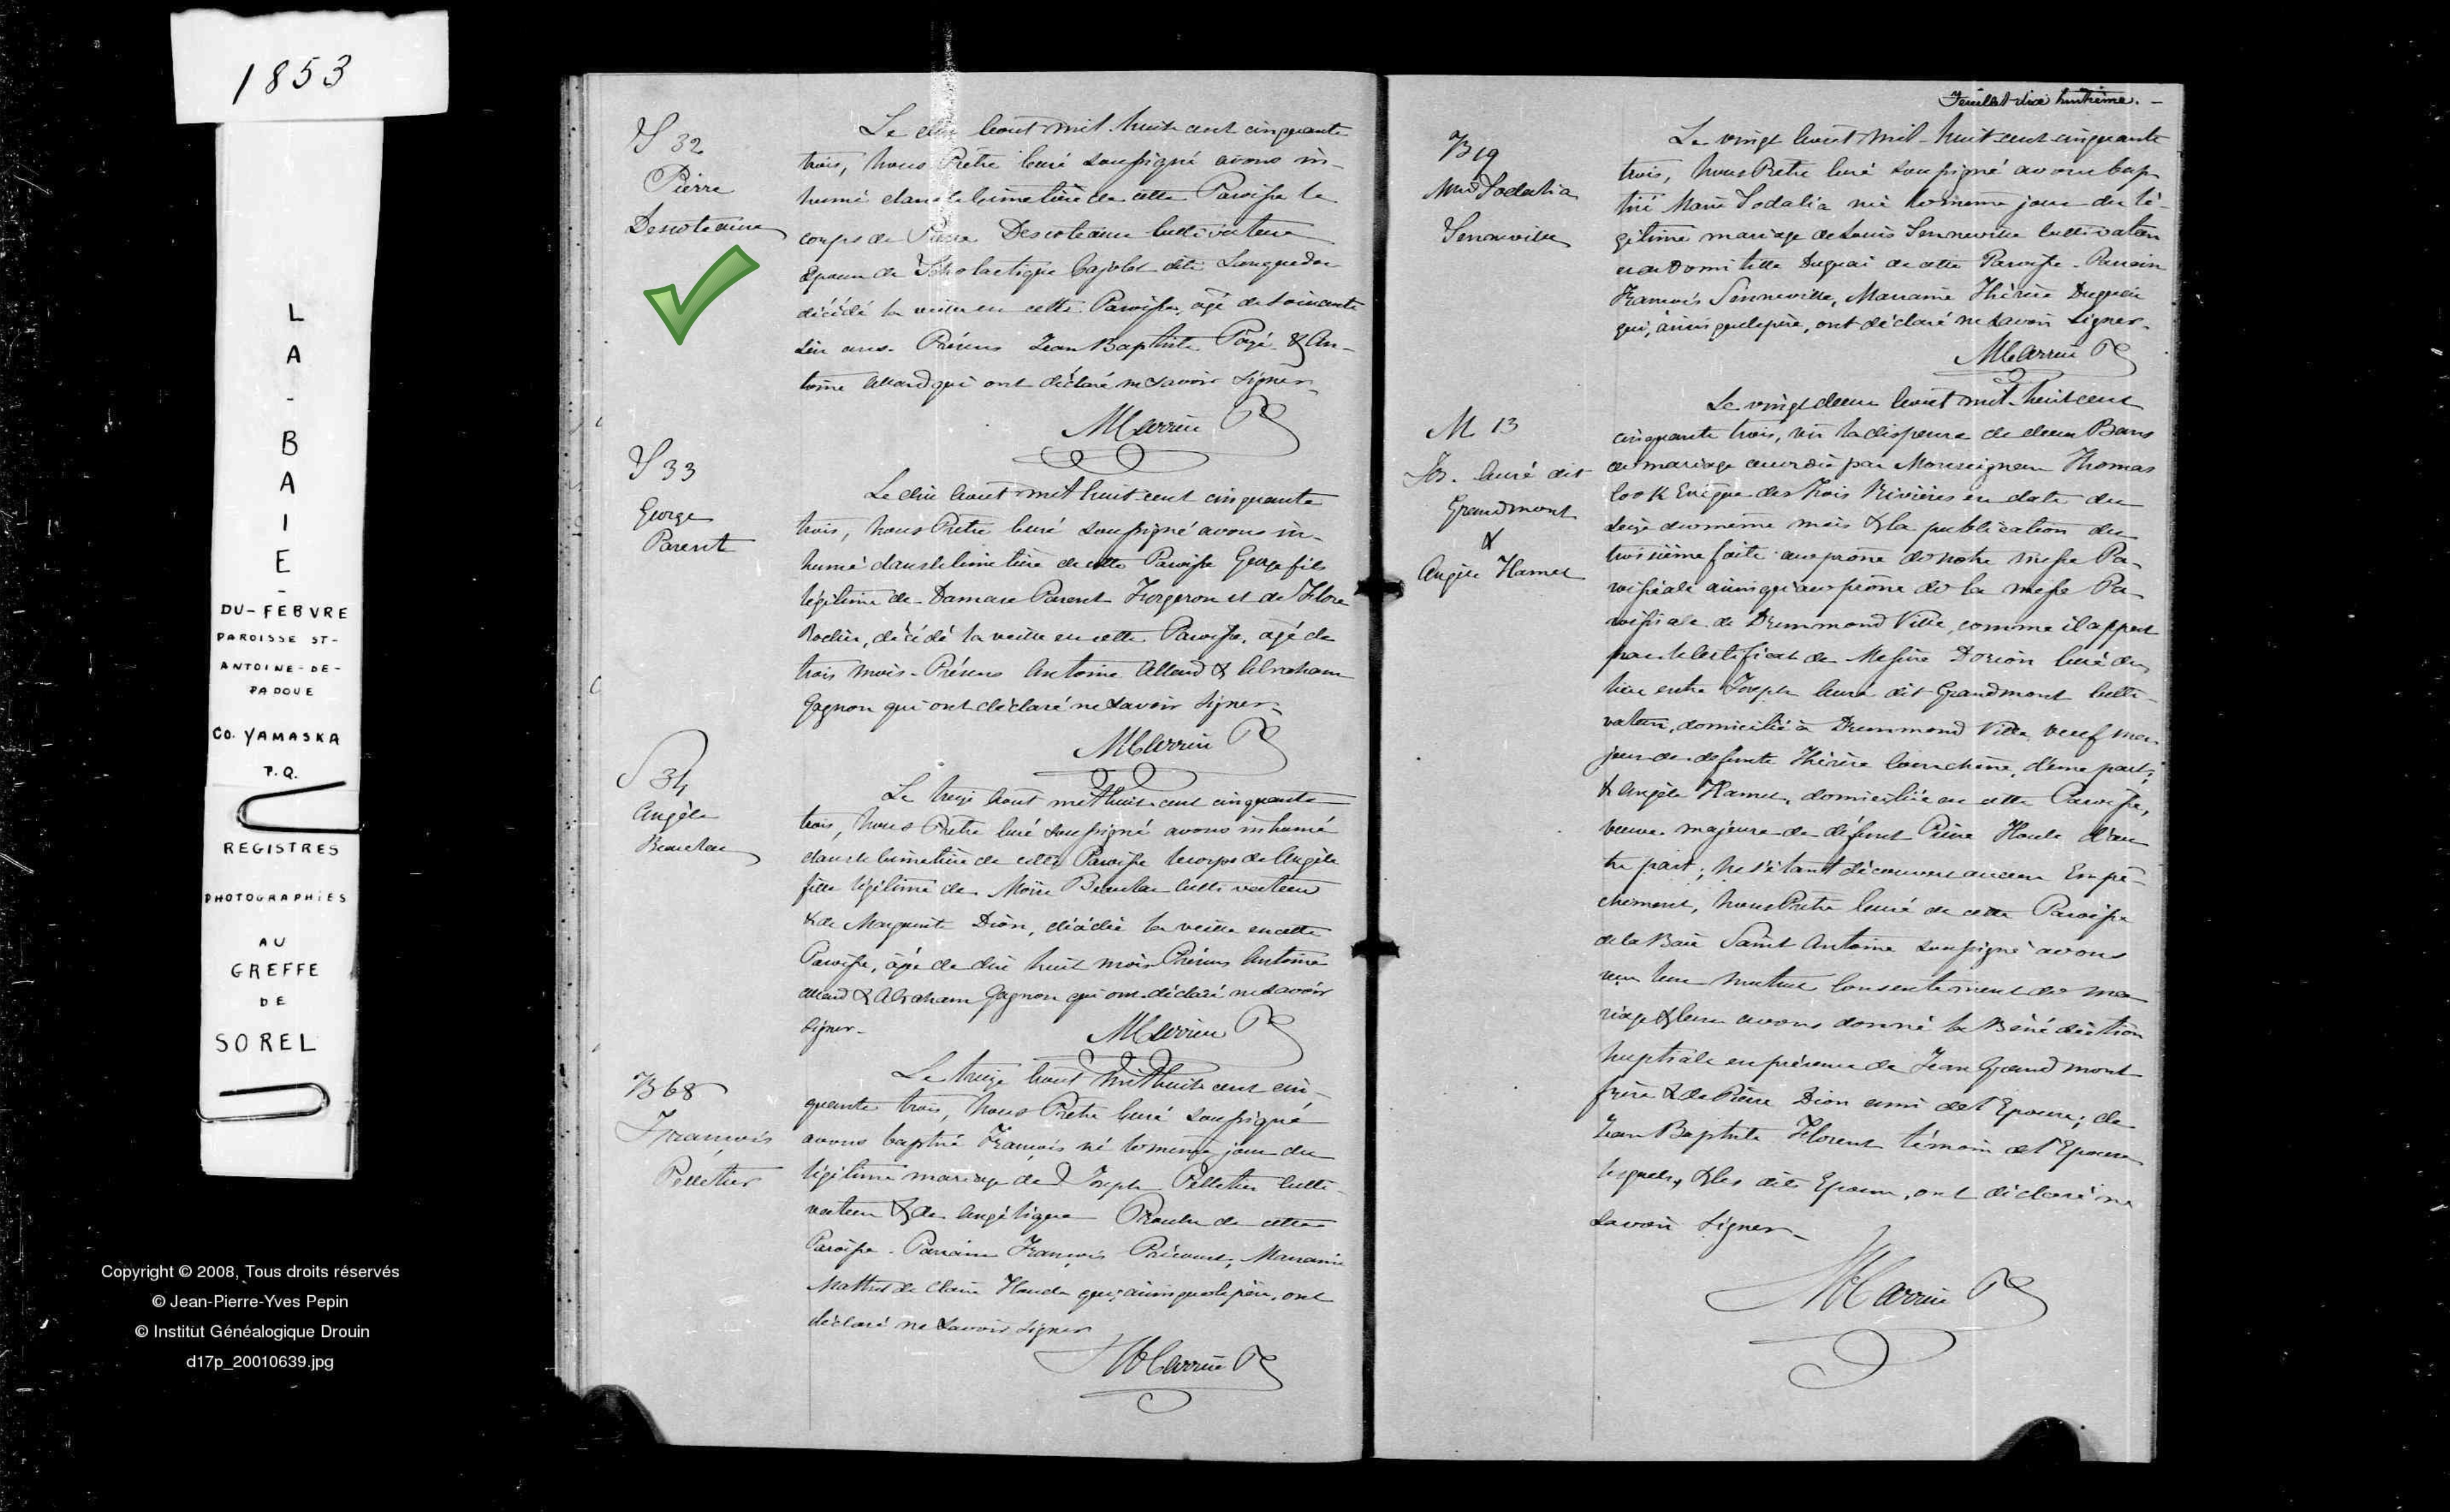 1853
LA-BAIE-
DU-FEBVRE
PAROISSE ST-
ANTOINE-DE-
PADOUE
CO. YAMASKA
P.Q.
REGISTRES
PHOTOGRAPHIES
AU
GREFFE
DE
SOREL
Copyright © 2008, Tous droits réservés
© Jean-Pierre-Yves Pepin
© Institut Généalogique Drouin
d17p_20010639.jpg
S 32
Pierre
Descoteaux
Le dix Aout mil huit cent cinquante
trois, Nous Prêtre Curé soussigné avons in-
humé dans le Cimetière de cette Paroisse le
corps de Pierre Descoteaux Cultivateur
Epoux de Scholastique Cajolet dite Languedoc
décédé la veille en cette Paroisse, agé de soixante
dix ans. Présens Jean Baptiste Pagé & An-
toine Allard qui ont déclaré ne savoir signer
MCarrier Ptre
S 33
George
Parent
Le dix Aout mil huit cent cinquante
trois, Nous Prêtre Curé soussigné avons in-
humé dans le Cimetière de cette Paroisse George fils
légitime de Damase Parent Forgeron et de Flore
décédé la veille en cette Paroisse, agé de
trois mois. Présens Antoine Allard & Abraham
Gagnon qui ont déclaré ne savoir signer.
MCarrier Ptre
S 34
Angèle
Beaulac
Le treize Aout mil huit cent cinquante
trois, Nous Prêtre Curé soussigné avons inhumé
dans le Cimetière de cette Paroisse le corps de Angèle
fille légitime de Moïse Beaulac Cultivateur
& de Marguerite Dion, décédée la veille en cette
Paroisse, agée de dix huit mois. Présens Antoine
Allard & Abraham Gagnon qui ont déclaré ne savoir
signer.
MCarrier Ptre
B 68
François
Pelletier
Le treize Aout mil huit cent cin-
quante trois, Nous Prêtre Curé soussigné
avons baptisé François né le même jour du
légitime mariage de Joseph Pelletier Culti-
vateur & de Angélique Proulx de cette
Paroisse. Parrain François Précourt, Marraine
Mathilde Claire Houde qui, ainsi que le père, ont
déclaré ne savoir signer
MCarrier Ptre
Feuillet dix huitième.
Marie Sodalia
Senneville
Le vingt Aout mil huit cent cinquante
trois, Nous Prêtre Curé soussigné avons bap-
tisé Marie Sodalia née le même jour du lé-
gitime mariage de Louis Senneville Cultivateur
et de Domitille Duguai de cette Paroisse. Parrain
François Senneville, Marraine Thérèse Duguai
qui, ainsi que le père, ont déclaré ne savoir signer.
MCarrier Ptre
M 13
Jos. Curé dit
Grandmont
&
Angèle Hamel
Le vingt deux Aout mil huit cent
cinquante trois, vu la dispense de deux Bans
de mariage accordée par Monseigneur Thomas
Cook Evêque des Trois Rivières en date du
seize du même mois & la publication du
troisième faite au prône de notre messe Pa-
roissiale ainsi qu'au prône de la messe Pa-
roissiale de Drummond Ville, comme il appert
par le Certificat de Messire Dorion Curé du
lieu entre Joseph Curé dit Grandmont Culti-
vateur, domicilié à Drummond Ville, veuf ma-
jeur de defunte Thérèse Courchène, d'une part;
& Angèle Hamel, domiciliée en cette Paroisse,
veuve majeure de défunt Pierre Houle d'au-
tre part; ne s'étant découvert aucun Empê-
chement, Nous Prêtre Curé de cette Paroisse
de la Baie Saint Antoine soussigné avons
reçu leur mutuel Consentement de ma-
riage & leur avons donné la Bénédiction
Nuptiale en présence de Jean Grandmont
frère & de Pierre Dion ami de l'Epoux; de
Jean Baptiste Florent témoin de l'Epouse
lesquels, & les dits Epoux, ont déclaré ne
savoir signer
MCarrier Ptre